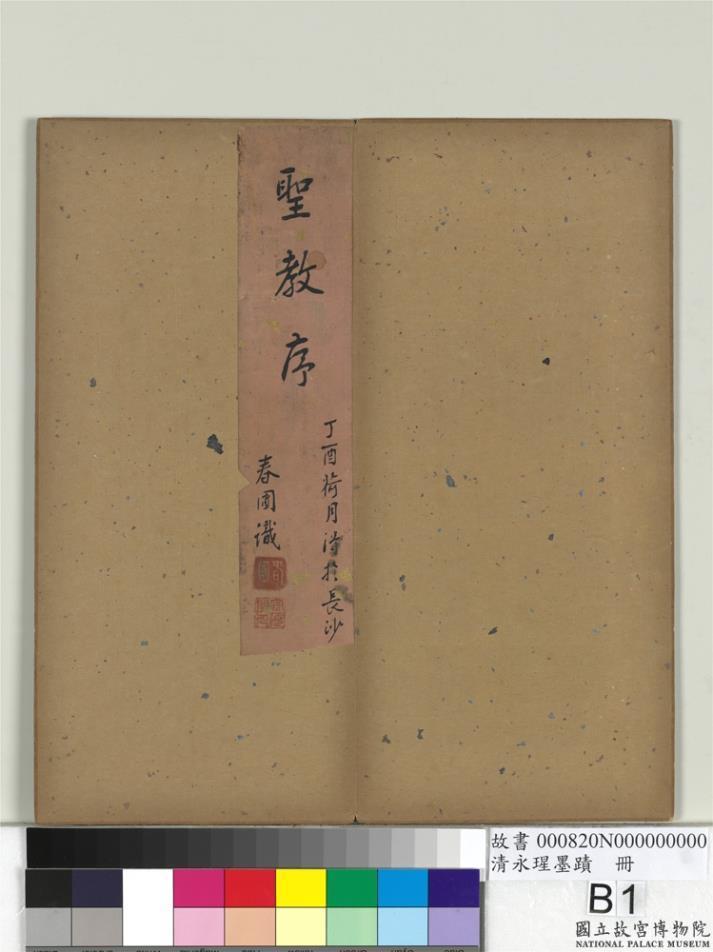 聖教序
丁酉荷月得於長沙
春圃識
故書 000820N000000000
清永瑆墨蹟 冊
B1
國立故宮博物院
NATIONAL PALACE MUSEUM